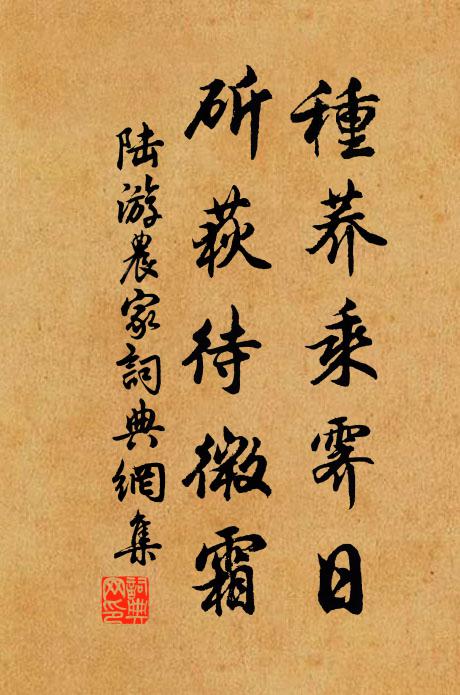 種荞乘霽日
斫荻待微霜
陆游農家詞典網集
詞典网印